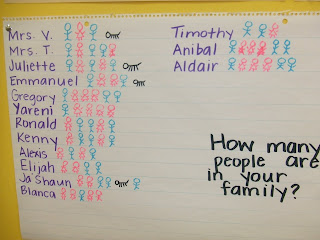 Mrs. V.
Mrs. T.
Juliette
Emmanuel
Gregory
Yareni
Ronald
Kenny
Alexis
Elijah
Ja'Shaun
Blanca
Timothy
Anibal
Aldair
How many
people are
in your
family?